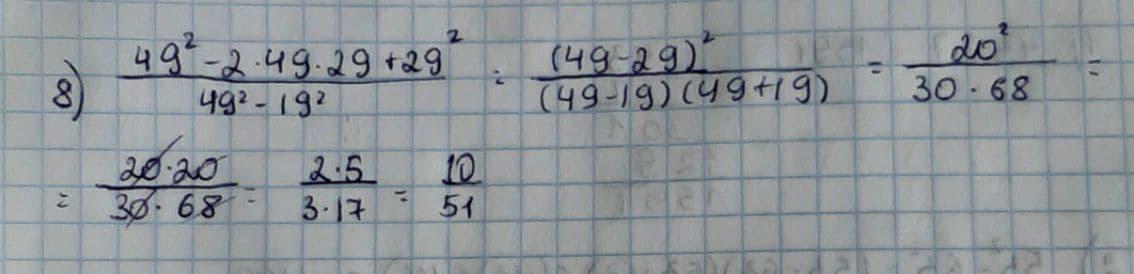 8) (49² - 2·49·29 + 29²)/(49² - 19²) = (49-29)²/((49-19)(49+19)) = 20²/(30·68) =
= (20·20)/(30·68) = (2·5)/(3·17) = 10/51